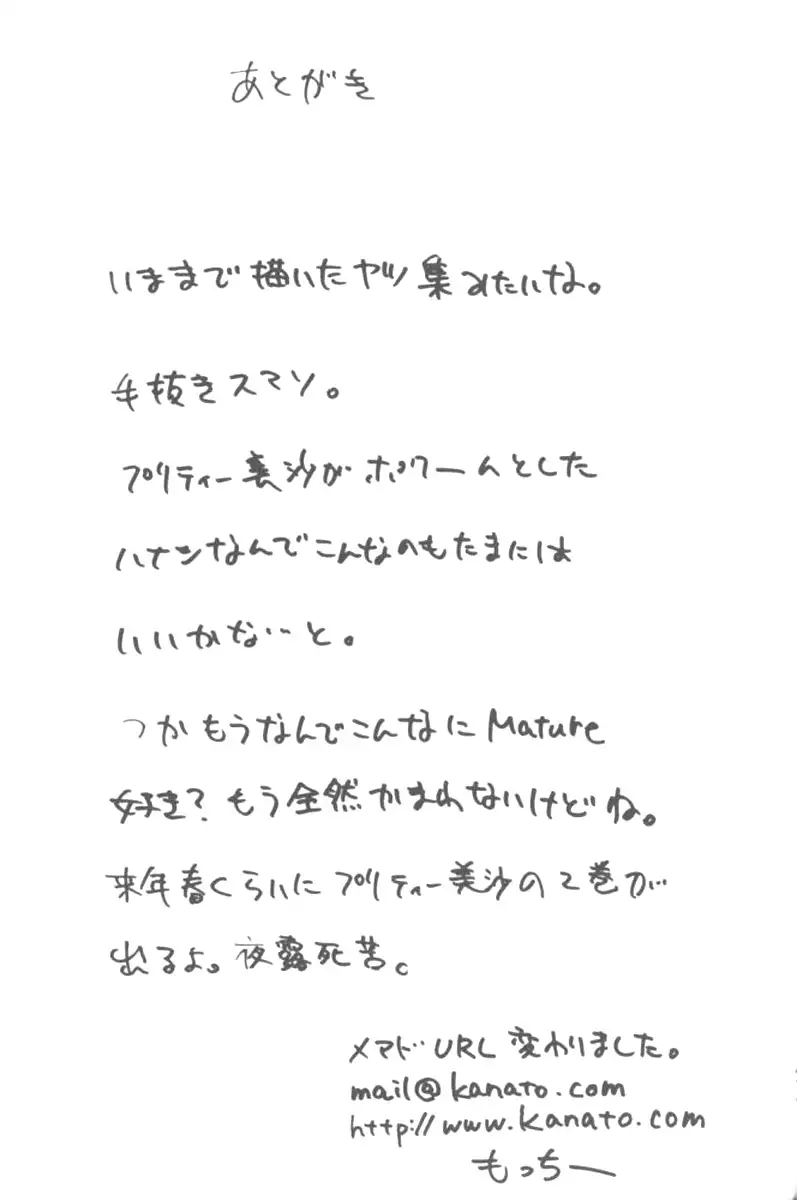 あとがき
いままで描いたヤツ集みたいな。
手抜きスマソ。
プリティー美沙がポワーんとした
ハナシなんでこんなのもたまには
いいかな…と。
つかもうなんでこんなにMature
好き?もう全然かまわないけどね。
来年春くらいにプリティー美沙の2巻が
出るよ。夜露死苦。
メアドURL変わりました。
mail@kanato.com
http://www.kanato.com
もっちー